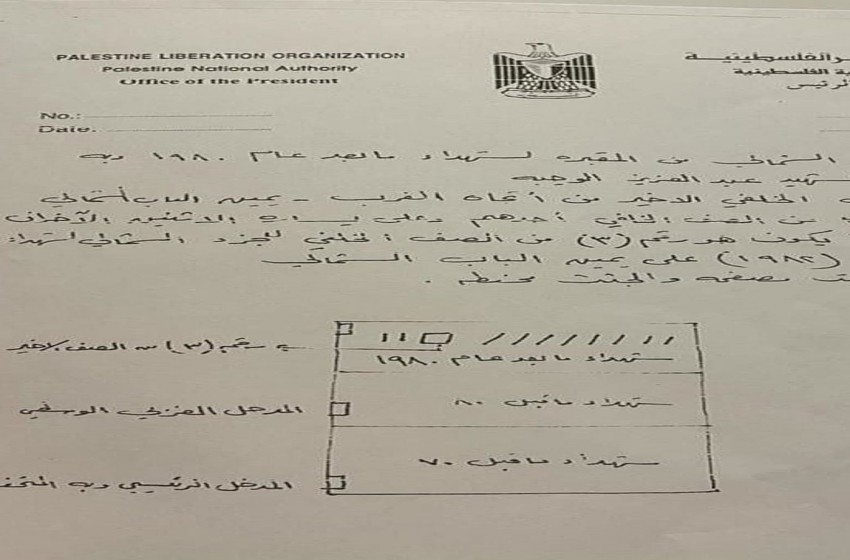 PALESTINE LIBERATION ORGANIZATION
Palestine National Authority
Office of the President
الفلسطينية
ية الفلسطينية
الرئيس
No.:
Date.
الشمالي من المقبرة لشهداء ما بعد عام ١٩٨٠ وبه
عبد العزيز الوجيه
الخلفي الأخير من اتجاه الغرب - يمين الباب الشمالي
من الصف الثاني أحدهم وعلى يساره الاثنين الآخرين
يكون هو رقم (٣) من الصف الخلفي للجزء الشمالي لشهداء
(١٩٨٢) على يمين الباب الشمالي
مصفحة والجثث محنطة .
رقم (٣) من الصف الاخير
شهداء ما بعد عام ١٩٨٠
المدخل الفرعي الوسطي
شهداء ما قبل ٨٠
المدخل الرئيسي وبه
شهداء ما قبل ٧٠